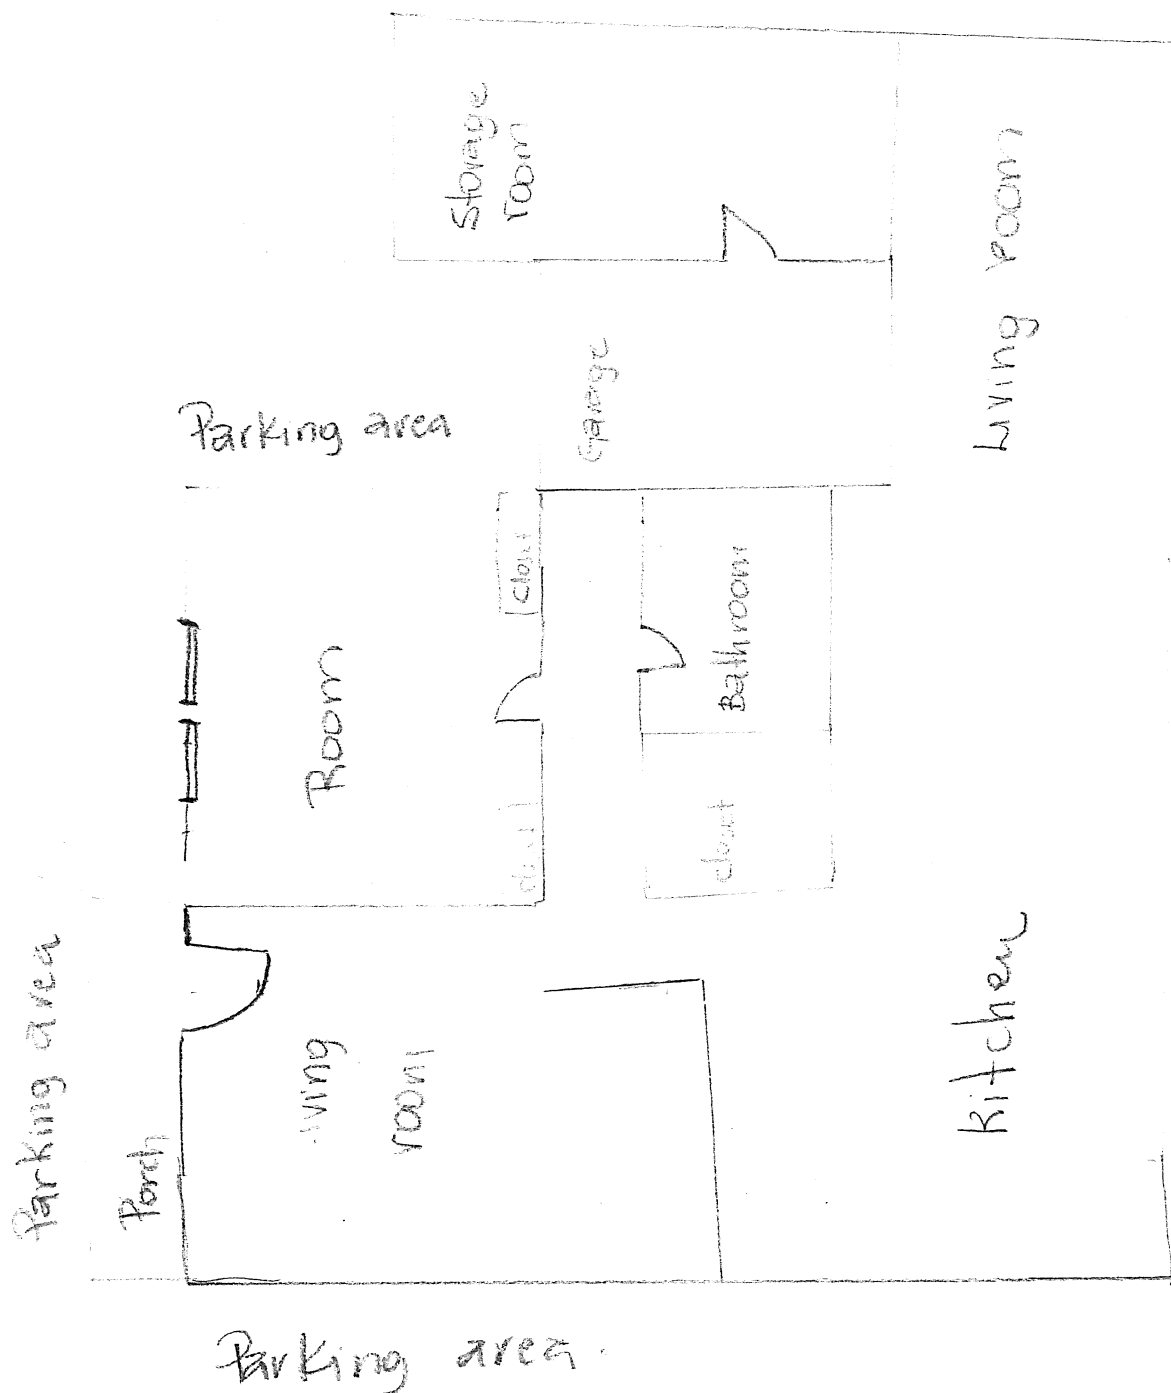 Storage
room
Living room
Garage
Parking area
closet
Bathroom
Room
closet
Parking area
Porch
living
room
Kitchen
Parking area